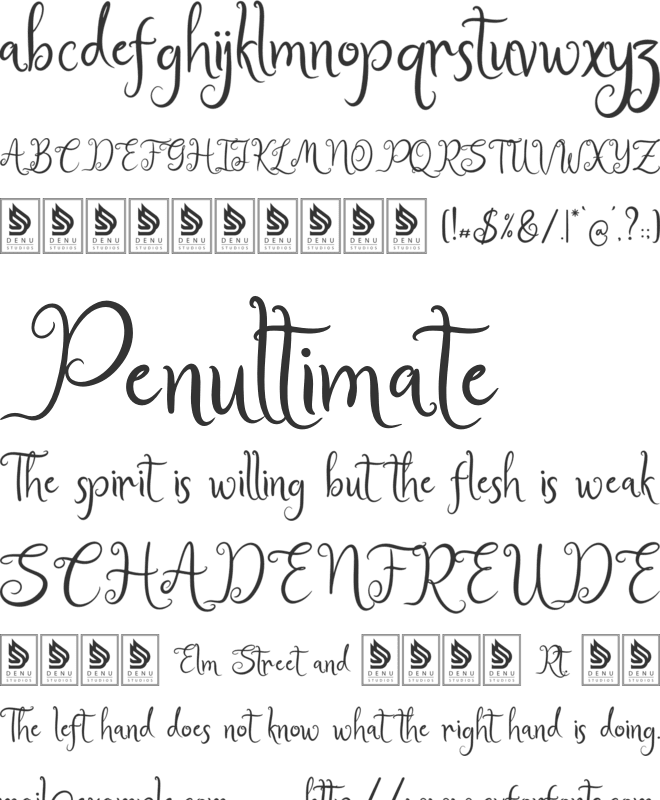 abcdefghijklmnopqrstuvwxyz
ABCDEFGHIJKLMNOPQRSTUVWXYZ
DENU STUDIOS DENU STUDIOS DENU STUDIOS DENU STUDIOS DENU STUDIOS DENU STUDIOS DENU STUDIOS DENU STUDIOS DENU STUDIOS DENU STUDIOS (!#$%&/.|*`@´,?:;)
Penultimate
The spirit is willing but the flesh is weak
SCHADENFREUDE
DENU STUDIOS DENU STUDIOS DENU STUDIOS DENU STUDIOS Elm Street and DENU STUDIOS DENU STUDIOS DENU STUDIOS DENU STUDIOS Rt. DENU STUDIOS DENU STUDIOS
The left hand does not know what the right hand is doing.